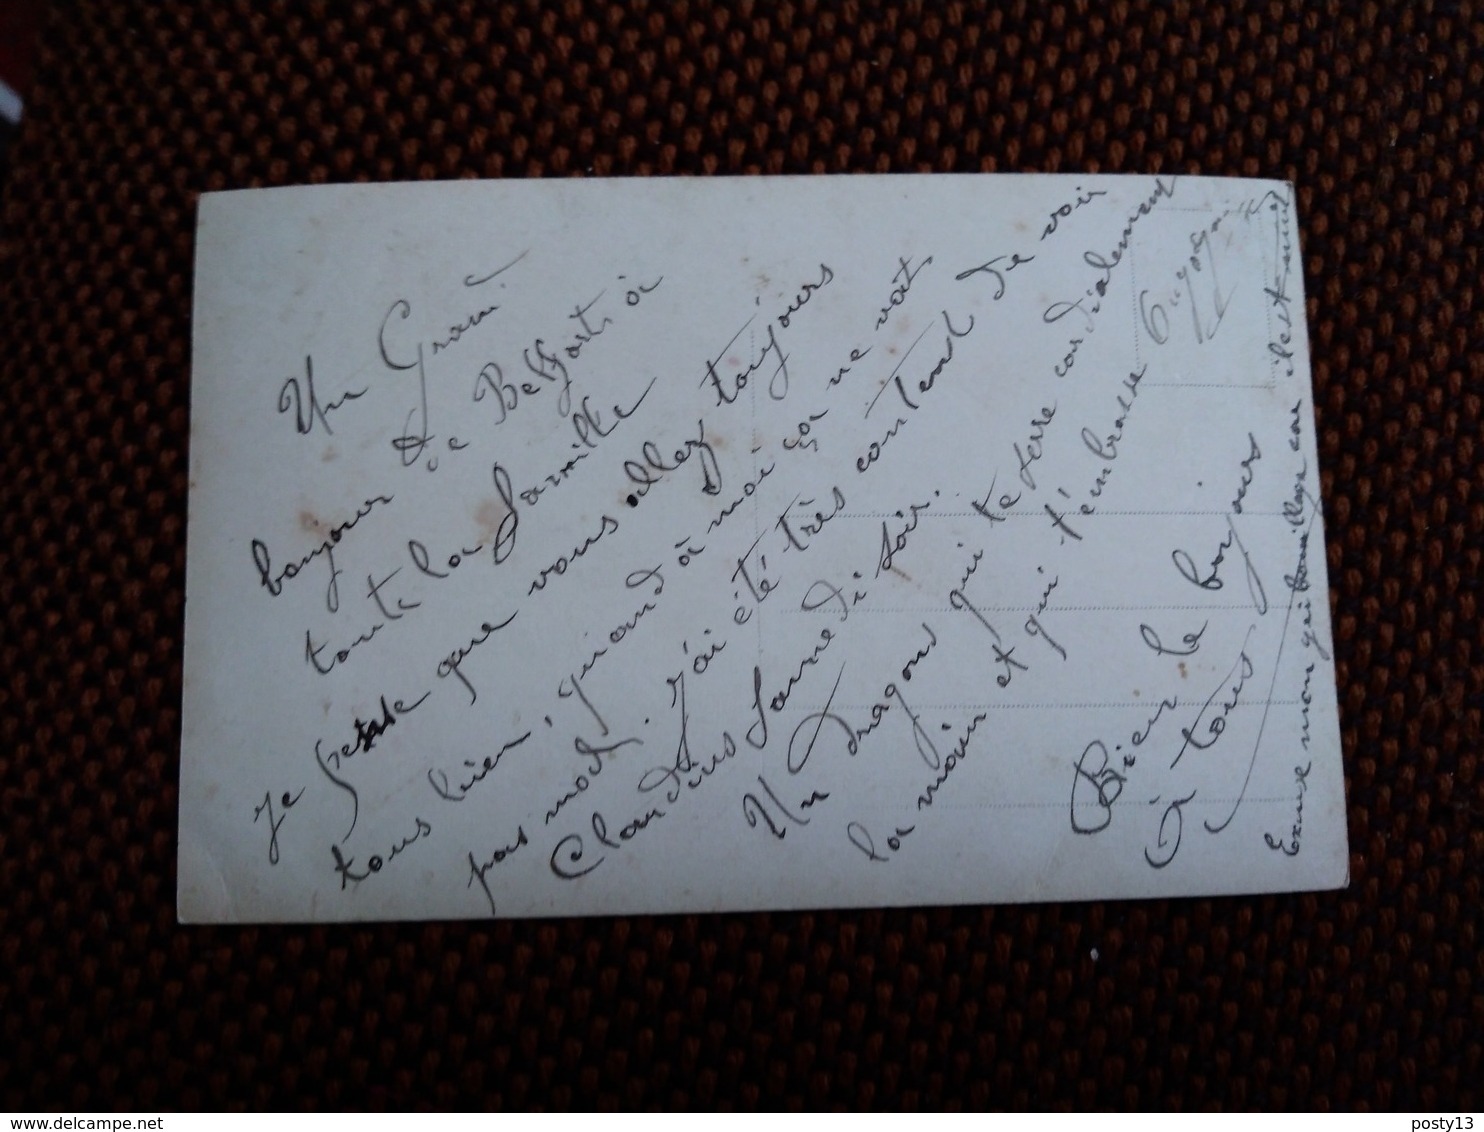 Un Grand
bonjour de Belfort à
toute la famille
Je pense que vous allez toujours
tous bien, quand à moi ça ne vat
pas mal. J'ai été très contend de voir
Claudius samedi soir.
Un dragon qui te serre cordialement
la main et qui t'embrasse
Bien le bonjours
à tous
Excuse mon gribouillage car il est
© delcampe.net
posty13